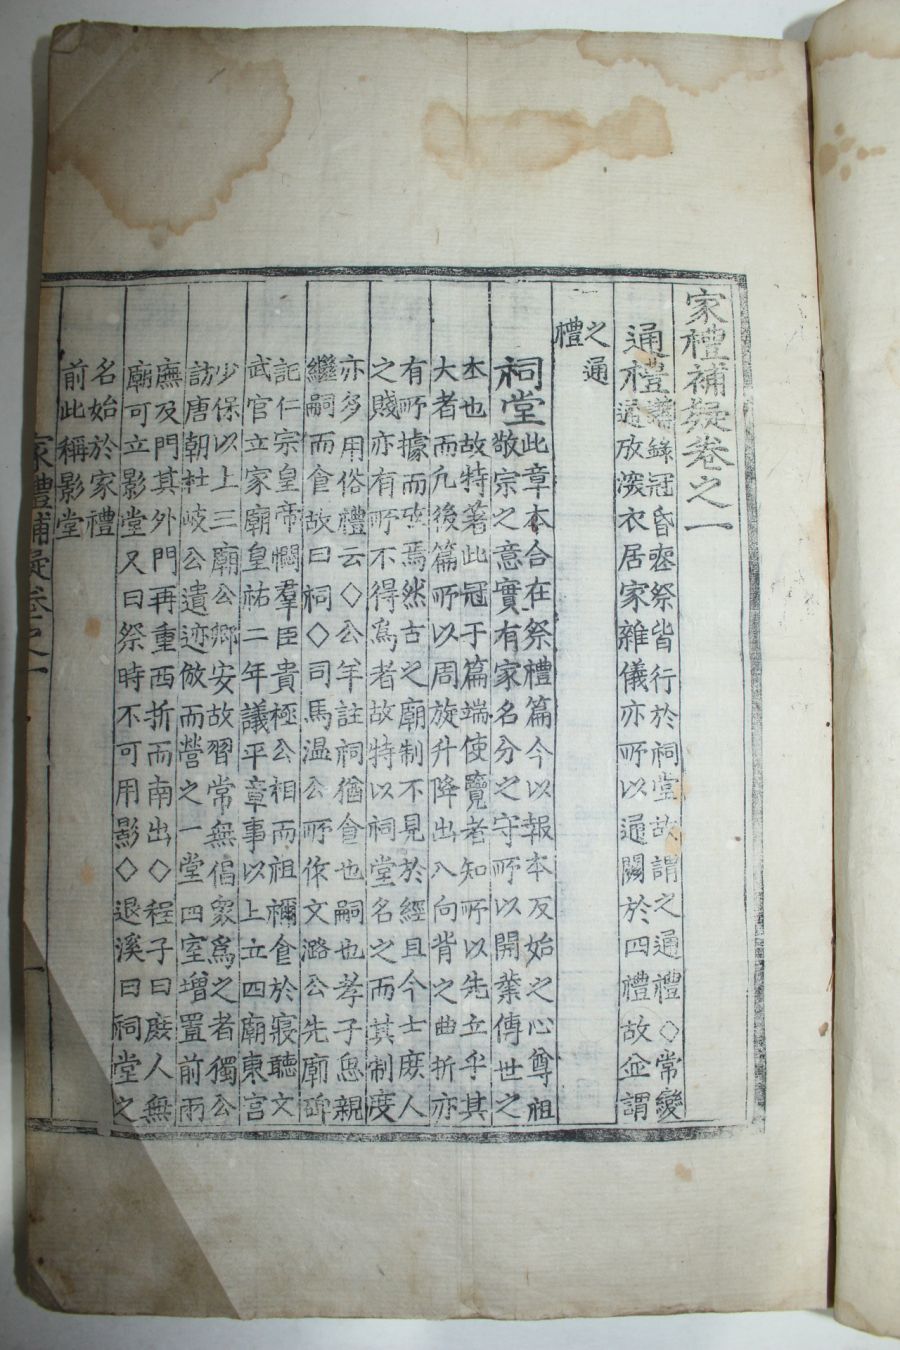 家禮補疑卷之一
通禮
錄冠昏喪祭皆行於祠堂故謂之通禮◇常變
通攷深衣居家雜儀亦所以通關於四禮故並謂
之通
禮
祠堂
此章本合在祭禮篇今以報本反始之心尊祖
敬宗之意實有家名分之守所以開業傳世之
本也故特著此冠于篇端使覽者知所以先立乎其
大者而凡後篇所以周旋升降出入向背之曲折亦
有所據而攷焉然古之廟制不見於經且今士庶人
之賤亦有所不得爲者故特以祠堂名之而其制度
亦多用俗禮云◇公羊註祠猶食也嗣也孝子思親
繼嗣而食故曰祠◇司馬溫公所作文潞公先廟碑
記仁宗皇帝憫羣臣貴極公相而祖禰食於寢聽文
武官立家廟皇祐二年議平章事以上立四廟東宮
少保以上三廟公卿安故習常無倡衆爲之者獨公
訪唐朝杜岐公遺迹倣而營之一堂四室增置前兩
廡及門其外門再重西折而南出◇程子曰庶人無
廟可立影堂又曰祭時不可用影◇退溪曰祠堂之
名始於家禮
前此稱影堂
家禮補疑卷之一
一